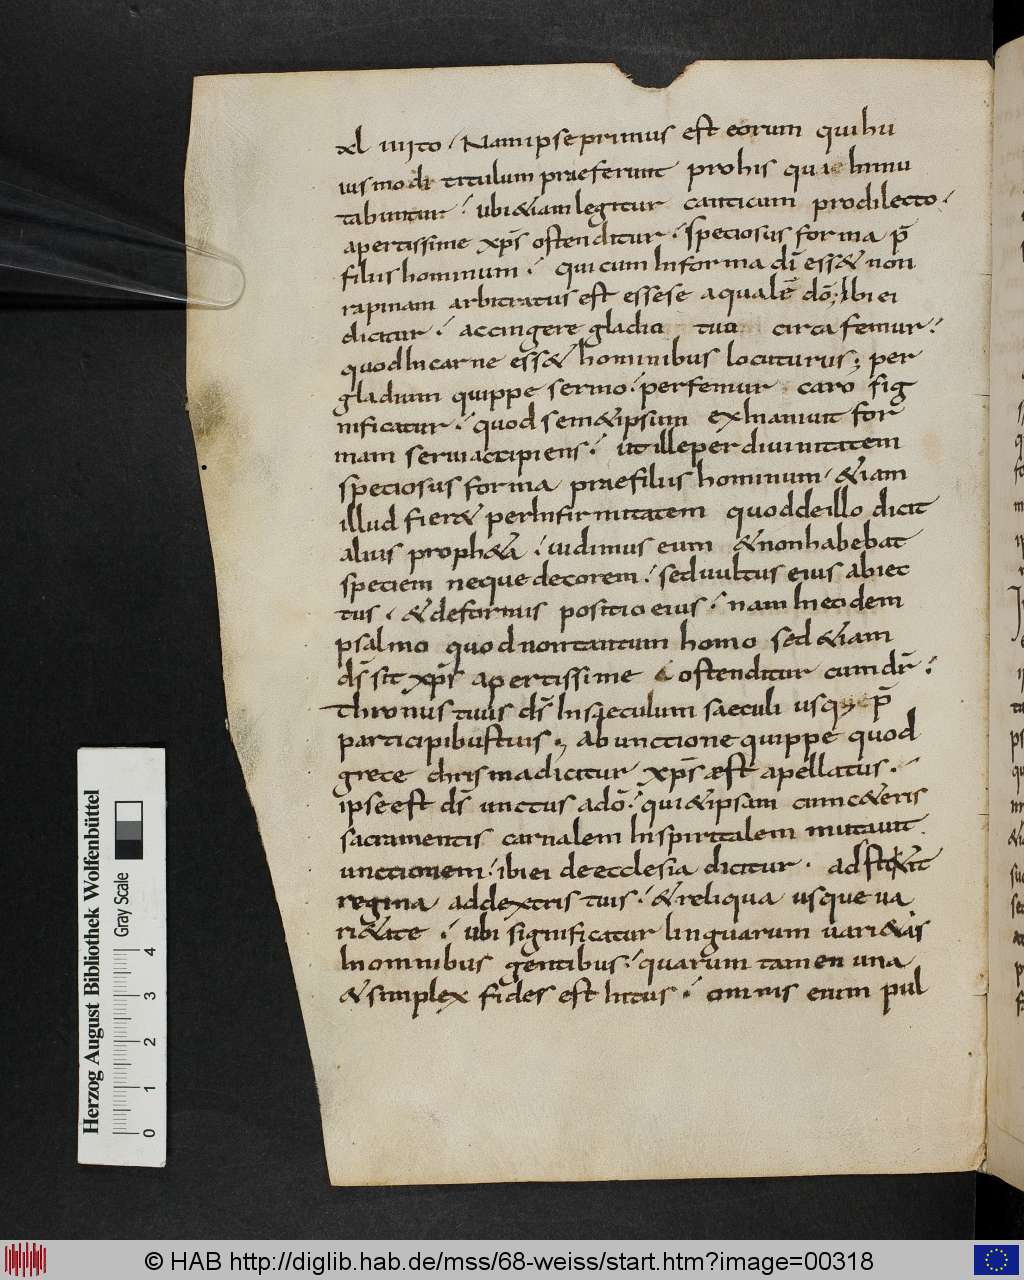 xl iiii to. Nam ipse primus est eorum qui hu
ius modi titulum praeferunt pro his quae Inmu
tabuntur. ubi &iam legitur canticum pro dilecto.
apertissime xp̄s ostenditur. speciosus forma p̄
filiis hominum. qui cum In forma dī ess& non
rapinam arbitratus est esse se aequalē dō; Ibi ei
dicitur. accingere gladio tuo circa femur.
quod In carne ess& hominibus locuturus; per
gladium quippe sermo. per femur caro sig
nificatur. quod sem&ipsum exInaniuit for
mam serui accipiens. ut ille per diuinitatem
speciosus forma prae filiis hominum &iam
illud fier& per Infirmitatem quod de illo dicit
alius proph&a. uidimus eum & non habebat
speciem neque decorem. sed uultus eius abiec
tus. & deformis positio eius. nam In eodem
psalmo quod non tantum homo sed &iam
ds̄ sit xp̄s apertissime ostenditur cum dr̄.
thronus tuus ds̄ In speculum saeculi usque p̄
participibus tuis; ab unctione quippe quod
grece chrisma dicitur xp̄s est apellatus.
ipse est ds̄ unctus a dō. qui &ipsam cum c&eris
sacramentis carnalem In spiritalem mutauit
unctionem. ibi ei de ecclesia dicitur. adstitit
regina ad dextris tuis. & reliqua usque ua
ri&ate. ubi significatur linguarum uari&as
In omnibus gentibus. quarum tamen una
& simplex fides est Intus. omnis enim pul
Herzog August Bibliothek Wolfenbüttel
Gray Scale
0 1 2 3 4
© HAB http://diglib.hab.de/mss/68-weiss/start.htm?image=00318